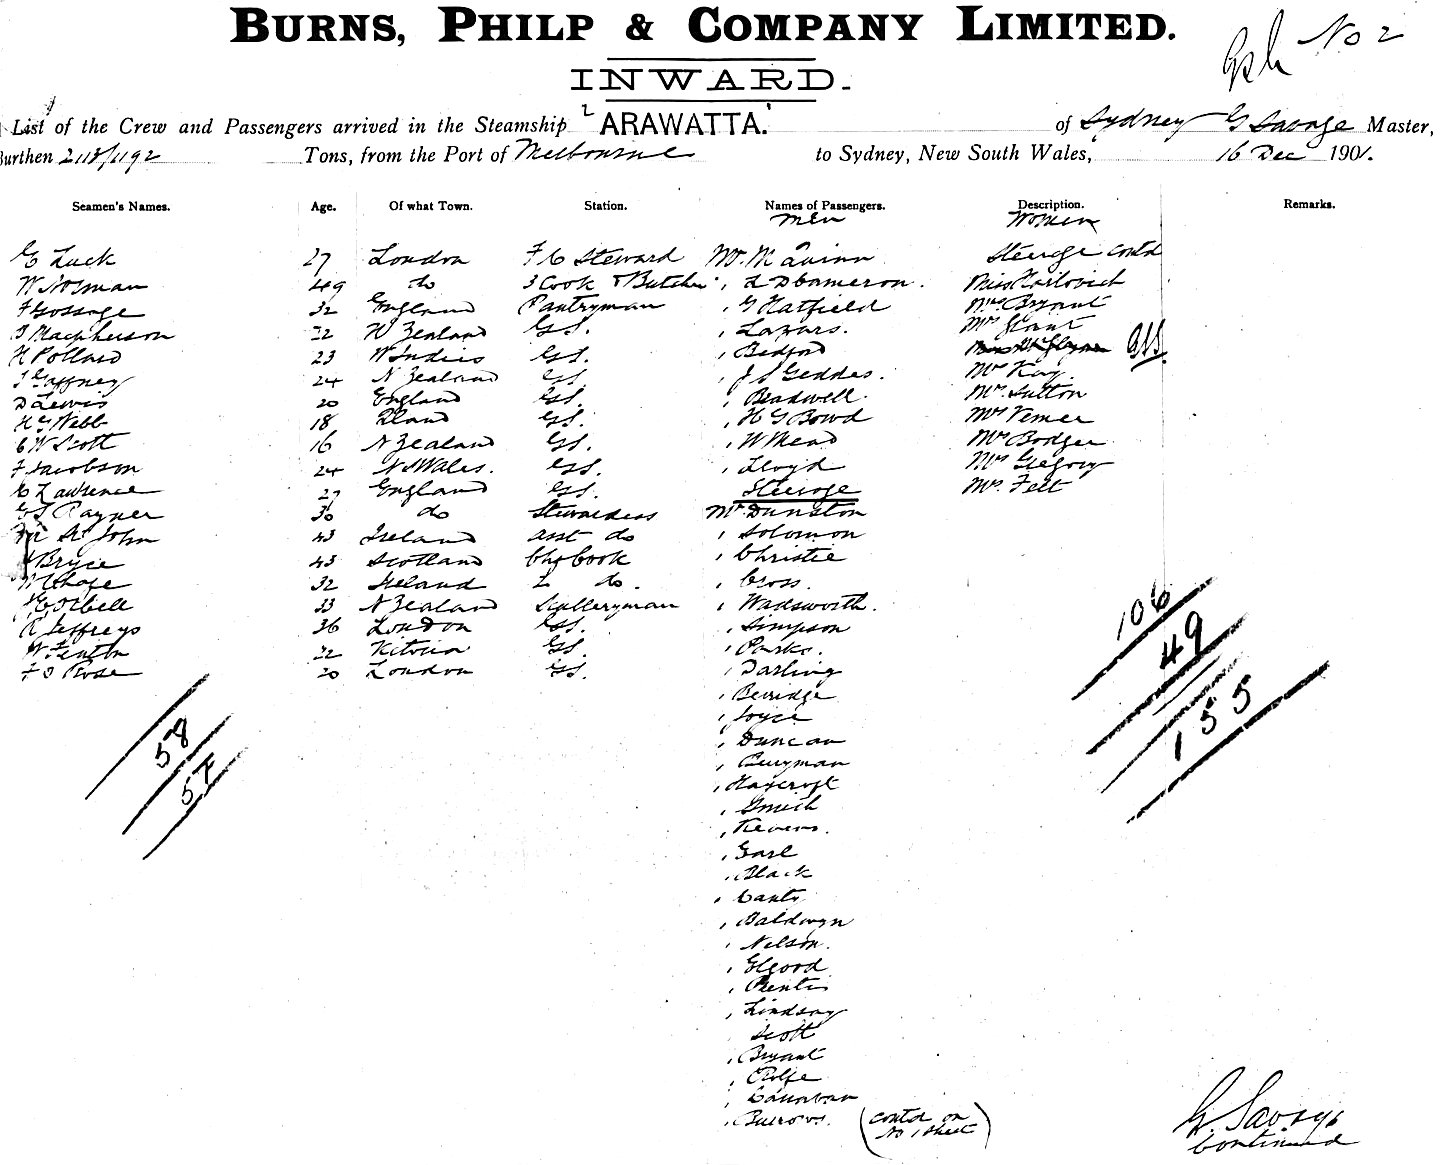 BURNS, PHILP & COMPANY LIMITED.
No 2
INWARD.
List of the Crew and Passengers arrived in the Steamship "ARAWATTA." of Sydney G Savage Master,
Burthen 2118/1192 Tons, from the Port of Melbourne to Sydney, New South Wales, 16 Dec 1901.
Seamen's Names. Age. Of what Town. Station. Names of Passengers. Description. Remarks.
Men Women
G Luck 27 London F C Steward Mr. M Quinn Steerage contd
W Norman 49 do 3 Cook & Butcher " L D Cameron. Miss
F Gossage 32 England Pantryman " G Hatfield Mrs Bryant
J Macpherson 22 N Zealand GS. " Lazars. Mrs Grant
H Pollard 23 W Indies GS. " Bedford
J Gaffney 24 N Zealand GS. " J S Geddes. Mrs Kay
D Lewis 20 England GS. " Beadwell. Mrs Sutton
H G Webb 18 GS. " H G Bowd Mrs Verner
C W Scott 16 N Zealand GS. " W Mead Mrs Bodger
F Jacobson 24 N S Wales. GS. " Lloyd Mrs Gregory
C Lawrence 27 England GS. Steerage Mrs Felt
G S Rayner 30 do Stewardess Mr Dunston
St John 43 Ireland asst do " Solomon
Bryce 43 Scotland Ch Cook " Christie
32 Ireland 2 do. " Cross.
Orbell 33 N Zealand Sculleryman " Wadsworth.
R Jeffreys 36 London GS. " Simpson
W Fenton 22 Victoria GS. " Parks.
F S Rose 20 London GS. " Darling
" Berridge
" Joyce
" Duncan
" Berryman
" Haycroft
" Smith
" Stevens.
" Earl
" Black
" Canty
" Baldwyn
" Nelson.
" Elgood
" Prentis
" Lindsay
Scott
" Bryant
" Rolfe
" Burrows.
(contd on No 1 sheet)
106
49
155
58
57
G. Savage
Continued